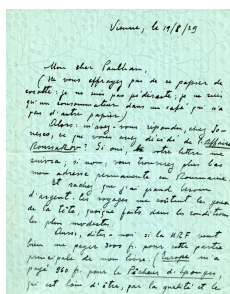 Vienne, le 19/8/29
Mon cher Paulhan
(Ne vous effrayez pas de ce papier de
cocotte: je ne suis pas pédéraste, je ne suis
qu'un consommateur dans un café qui n'a
pas d'autre papier)
Alors: m'avez-vous répondu, chez Jo-
nesco, ce que vous avez décidé de l'Affaire
Roussakov? Si oui, votre lettre me
suivra; si non, vous trouverez plus bas
mon adresse permanente en Roumanie.
Et sachez que j'ai grand besoin
d'argent: les voyages me coûtent les yeux
de la tête, quoique faits dans les conditions
les plus modestes.
Aussi, dites-moi si la NRF veut
bien me payer 3000 fr. pour cette partie
principale de mon livre: Europe m'a
payé 960 fr. pour le Pêcheur d'éponges,
qui est loin d'être, par la qualité et le